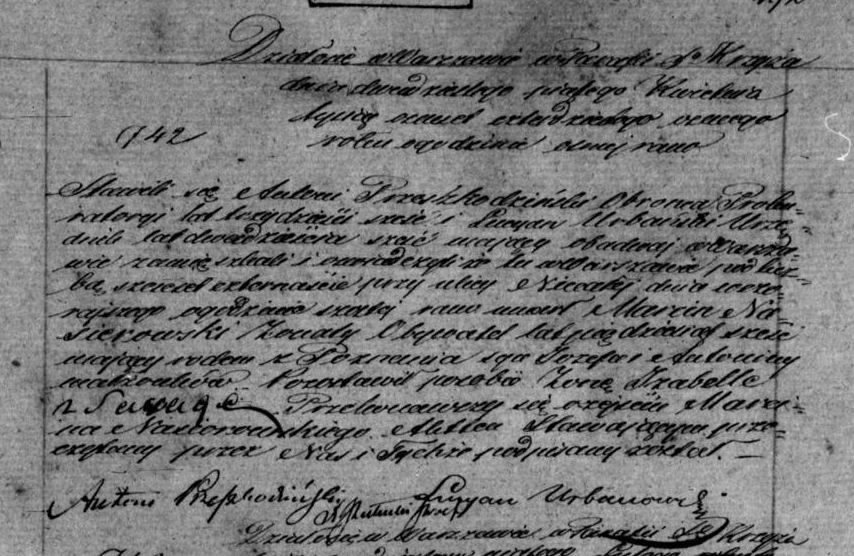 Działo się w Warszawie w Parafii Sgo Krzyża
dnia dwudziestego piątego Kwietnia
tysiąc osmset czterdziestego osmego
roku o godzinie osmej rano
742
Stawili się Antoni Przeszkodziński Obronca Proku-
ratoryi lat trzydzieści sześć i Lucyan Urbański Urzę-
dnik lat dwadzieścia sześć mający obadwaj w Warsza-
wie zamieszkali i oswiadczyli że tu w Warszawie pod licz-
bą szescset czternaście przy ulicy Niecałej dnia wczo-
rajszego o godzinie szostej rano umarł Marcin Na-
sierowski Żonaty Obywatel lat pięćdziesiąt sześć
mający rodem z Poznania syn Jozefa i Antoniny
małżonków Pozostawił po sobie Żonę Izabellę
z Przekonawszy się o zejściu Marci-
na Nasierowskiego Akt ten Stawającym prze-
czytany przez Nas i Tychże podpisany został. —
Antoni Przeszkodziński Lucyan
Działo się w Warszawie w Parafii Sgo Krzyża